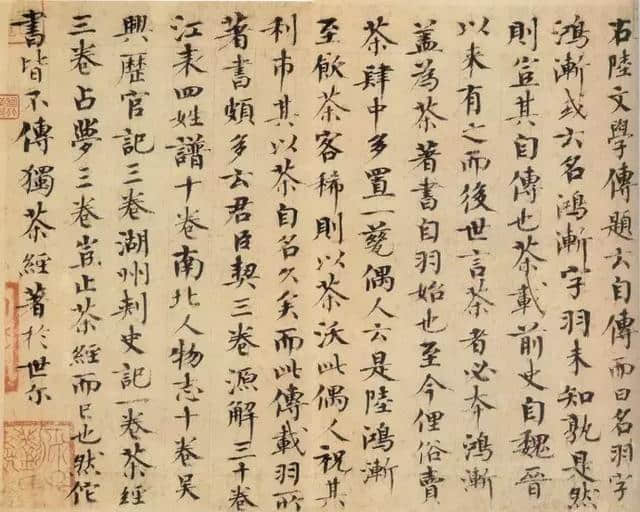 右陸文學傳題云自傳而曰名羽字
鴻漸或云名鴻漸字羽未知孰是然
則豈其自傳也茶載前史自魏晉
以來有之而後世言茶者必本鴻漸
蓋為茶著書自羽始也至今俚俗賣
茶肆中多置一甆偶人云是陸鴻漸
至飲茶客稀則以茶沃此偶人祝其
利市其以茶自名久矣而此傳載羽所
著書頗多云君臣契三卷源解三十卷
江表四姓譜十卷南北人物志十卷吳
興歷官記三卷湖州刺史記一卷茶經
三卷占夢三卷豈止茶經而已也然佗
書皆不傳獨茶經著於世尔